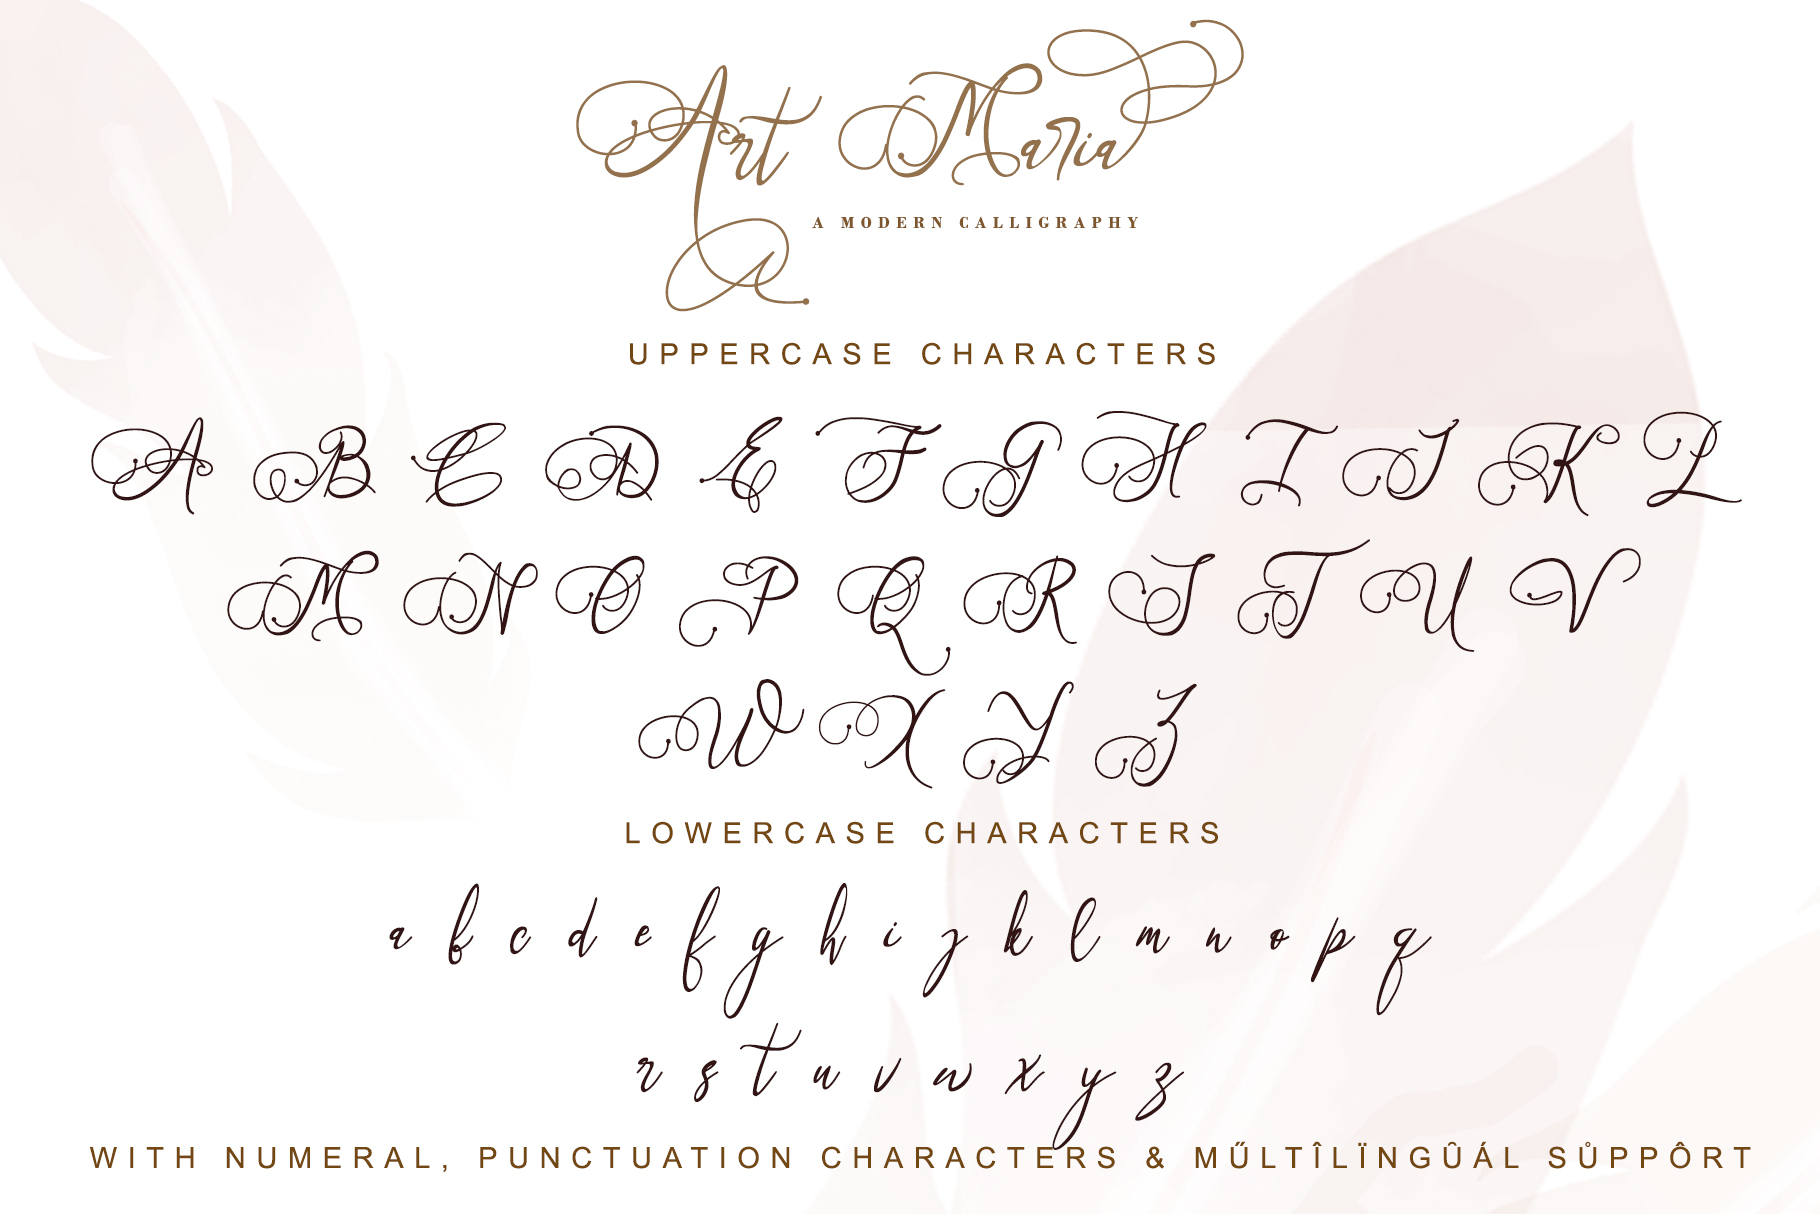 Art Maria
A MODERN CALLIGRAPHY
UPPERCASE CHARACTERS
A B C D E F G H I J K L
M N O P Q R S T U V
W X Y Z
LOWERCASE CHARACTERS
a b c d e f g h i j k l m n o p q
r s t u v w x y z
WITH NUMERAL, PUNCTUATION CHARACTERS & MŰLTÎLÏNGÛÁL SŮPPÔRT